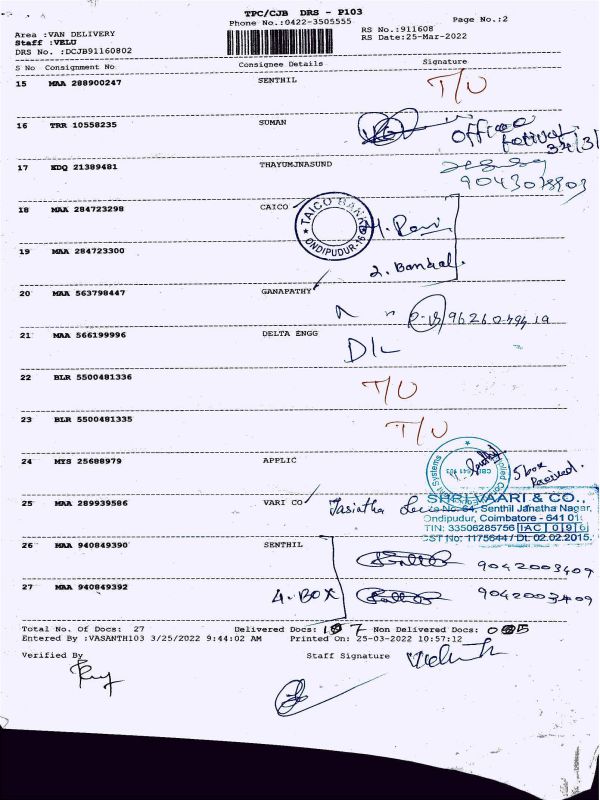 TPC/CJB DRS - P103
Phone No.:0422-3505555
Page No.:2
Area :VAN DELIVERY
RS No.:911608
Staff :VELU
RS Date:25-Mar-2022
DRS No. :DCJB91160802
S No Consignment No Consignee Details Signature
15 MAA 288900247 SENTHIL T/U
16 TRR 10558235 SUMAN office
17 KDQ 21389481 THAYUMJNASUND
18 MAA 284723298 CAICO
TAICO BANK
ONDIPUDUR-16
1. Ravi
19 MAA 284723300
2. Bankal.
20 MAA 563798447 GANAPATHY
21 MAA 566199996 DELTA ENGG D/L
22 BLR 5500481336 T/U
23 BLR 5500481335 T/U
24 MYS 25688979 APPLIC
5 box
Received.
25 MAA 289939586 VARI CO
SHRI VAARI & CO.,
No 64, Senthil Janatha Nagar,
Ondipudur, Coimbatore - 641 01
TIN: 33506285756 IAC 0196
CST No: 1175644 / Dt. 02.02.2015.
26 MAA 940849390 SENTHIL 9042003409
27 MAA 940849392 4. BOX 9042003409
Total No. Of Docs: 27 Delivered Docs: Non Delivered Docs:
Entered By :VASANTH103 3/25/2022 9:44:02 AM Printed On: 25-03-2022 10:57:12
Verified By Staff Signature